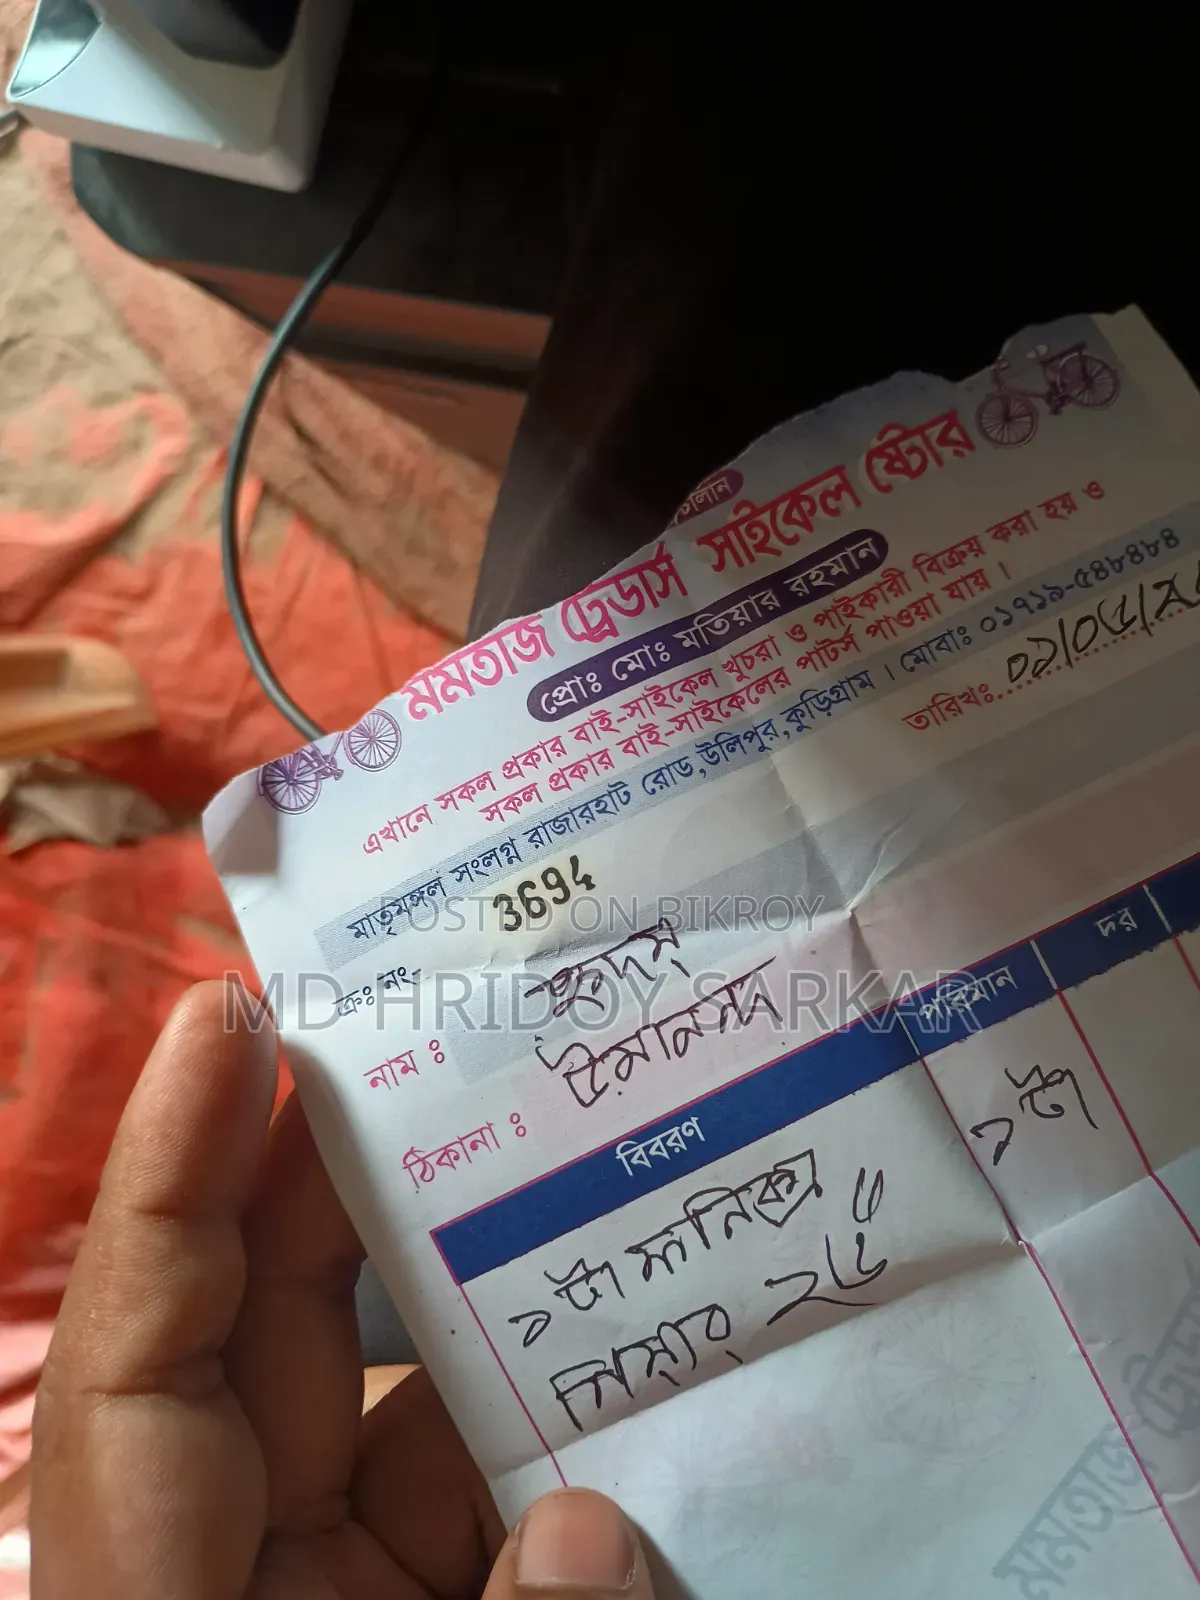 মমতাজ ট্রেডার্স সাইকেল ষ্টোর
প্রোঃ মোঃ মতিয়ার রহমান
এখানে সকল প্রকার বাই-সাইকেল খুচরা ও পাইকারী বিক্রয় করা হয় ও
সকল প্রকার বাই-সাইকেলের পার্টস পাওয়া যায়।
মাতৃমঙ্গল সংলগ্ন রাজারহাট রোড,উলিপুর,কুড়িগ্রাম । মোবাঃ ০১৭১৯-৫৪৮৪৮৪
তারিখঃ
ক্রঃ নং- 3694
POSTED ON BIKROY
MD HRIDOY SARKAR
নাম ঃ
ঠিকানা ঃ
বিবরণ পরিমান দর
১টা ফনিক্স ১টা
গিয়ার ২৬
মমতাজ